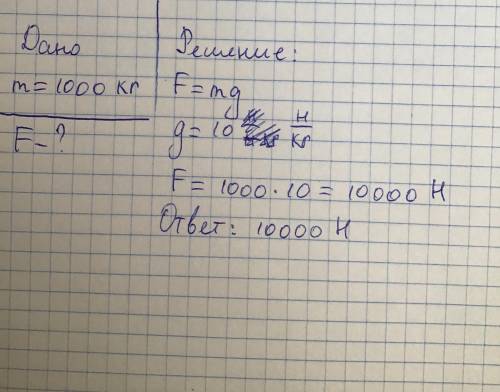 Дано
m = 1000 кг
F - ?
Решение:
F = mg
g = 10 Н/кг
F = 1000 · 10 = 10000 Н
Ответ: 10000 Н